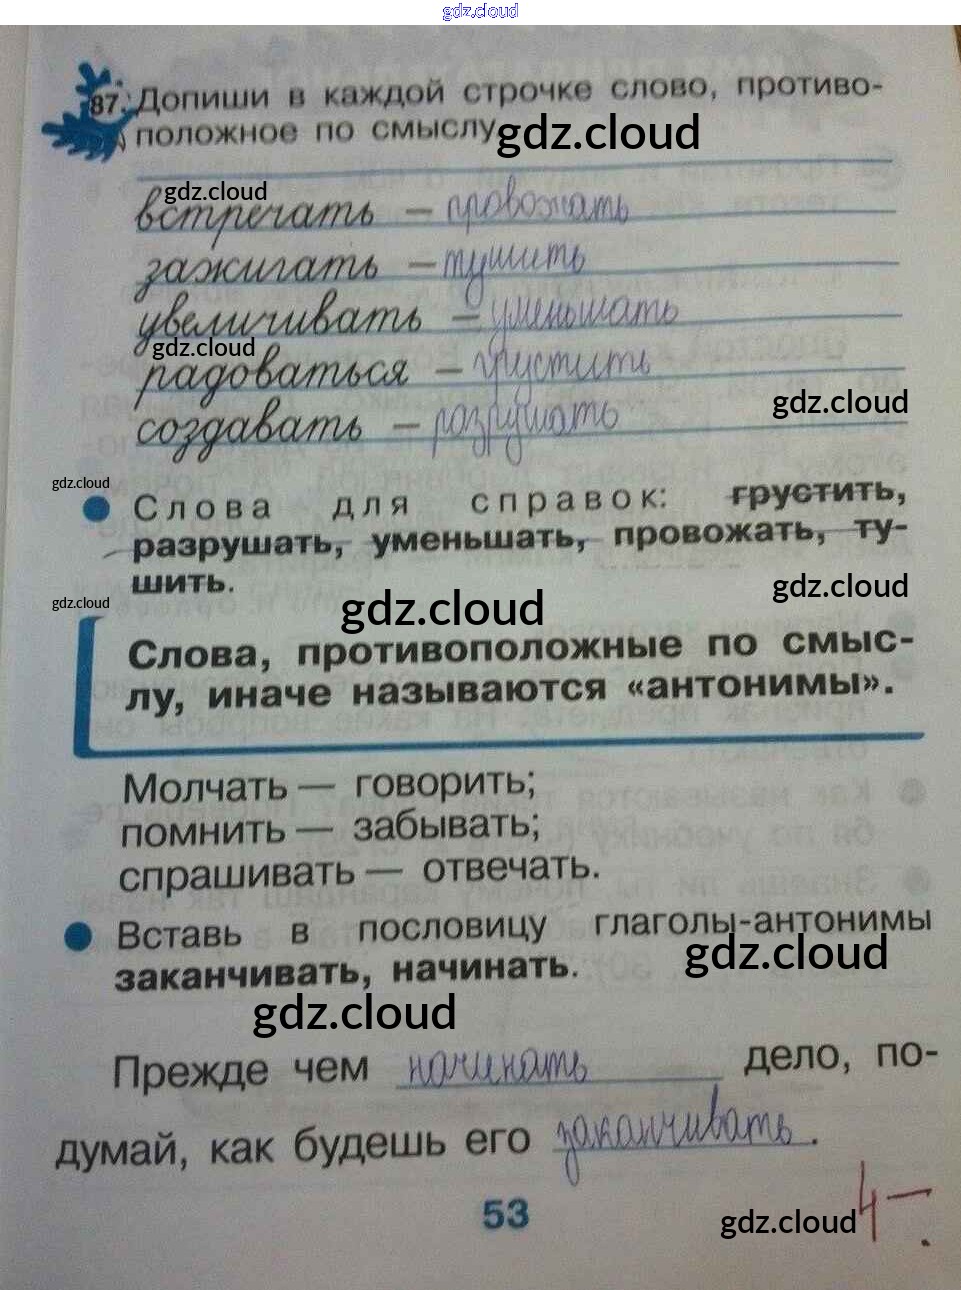 gdz.cloud
87. Допиши в каждой строчке слово, противо-
положное по смыслу.
gdz.cloud
gdz.cloud
встречать – провожать
зажигать – тушить
увеличивать – уменьшать
gdz.cloud
радоваться – грустить
gdz.cloud
создавать – разрушать
gdz.cloud
Слова для справок: грустить,
разрушать, уменьшать, провожать, ту-
шить.
gdz.cloud
gdz.cloud
gdz.cloud
Слова, противоположные по смыс-
лу, иначе называются «антонимы».
Молчать — говорить;
помнить — забывать;
спрашивать — отвечать.
Вставь в пословицу глаголы-антонимы
gdz.cloud
заканчивать, начинать.
gdz.cloud
Прежде чем начинать дело, по-
думай, как будешь его заканчивать.
53
gdz.cloud
4–